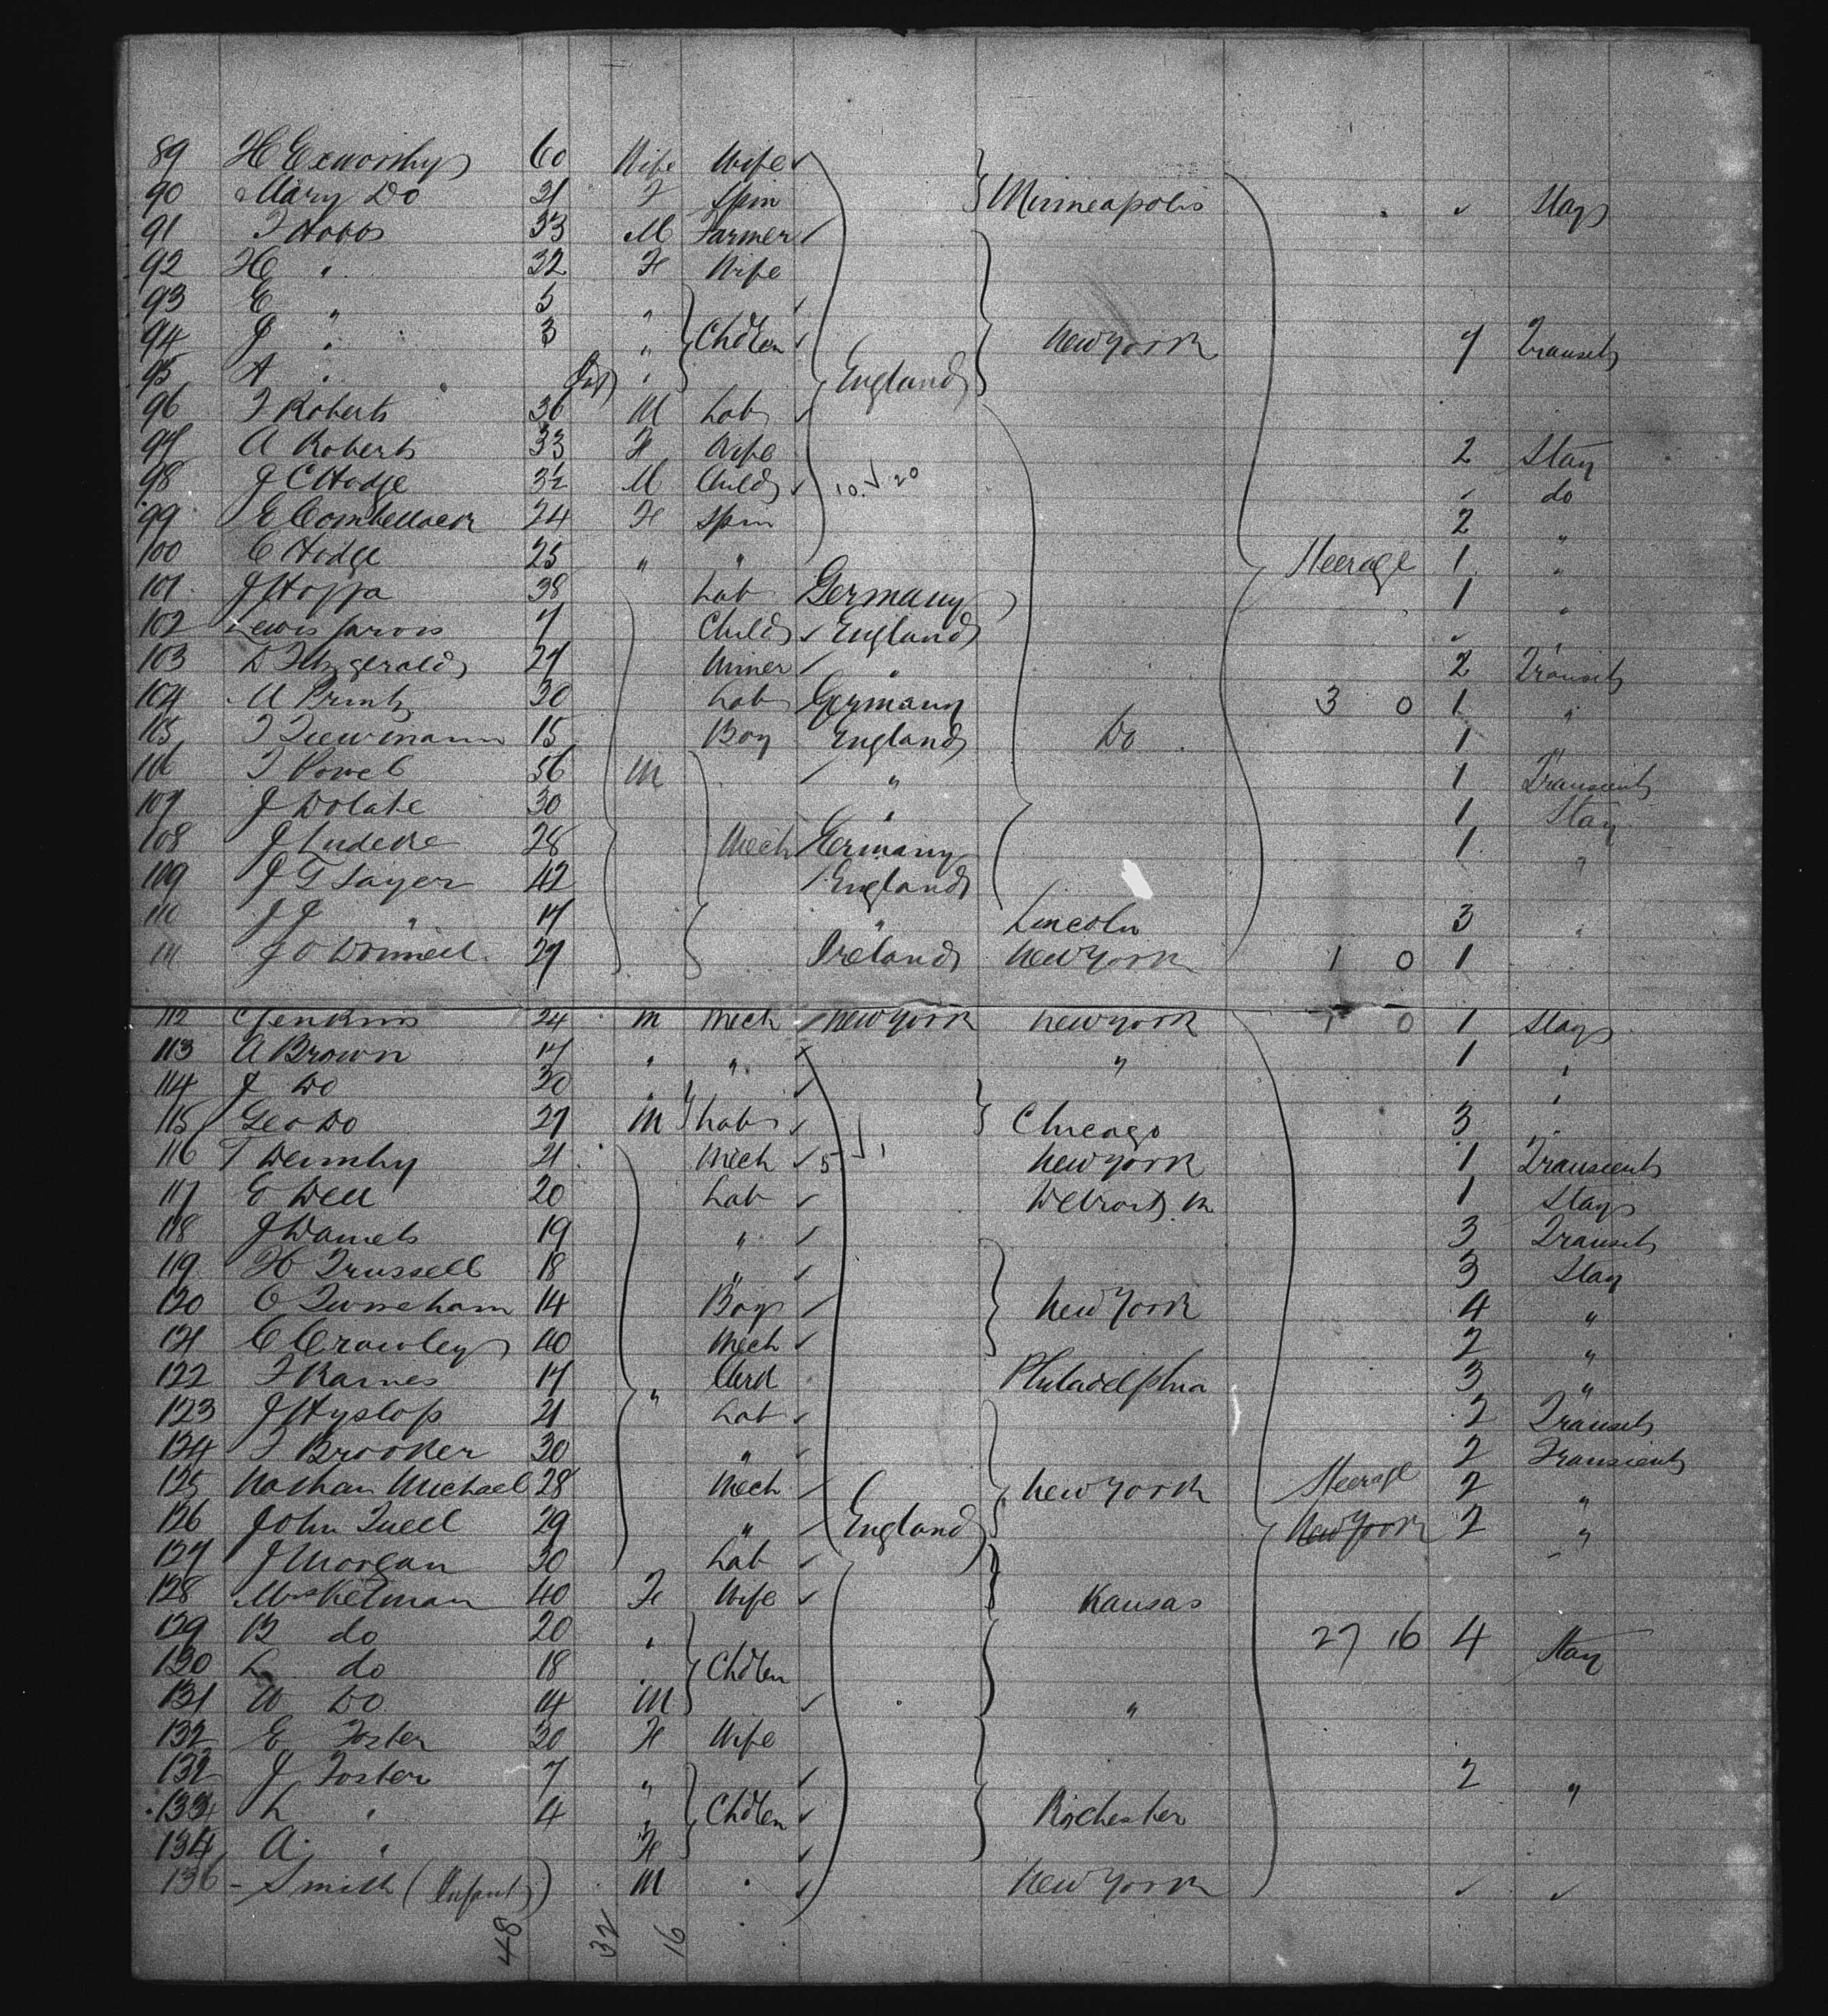 89 H Exworthy 60 Wife Wife
90 Mary Do 21 F Spin Minneapolis Stay
91 T Hobbs 33 M Farmer
92 H " 32 F Wife
93 E " 5 "
94 J " 3 " Chdlen New York 7 Transit
95 A " Inf " England
96 T Roberts 36 M Lab
97 A Roberts 33 F Wife 2 Stay
98 J C Hodge 3½ M Child 10 20 do
99 E 24 F Spin 2 "
100 C Hodge 25 " " Steerage 1 "
101 J Hoppa 38 Lab Germany 1 "
102 Lewis Jarvis 7 Child England "
103 D Fitzgerald 27 Miner " 2 Transit
104 M Printz 30 Lab Germany 3 0 1 "
105 T 15 Boy England Do 1 "
106 T Powel 56 M " 1 Transient
107 J 30 " 1 Stay
108 J Ludeke 28 Mech Germany 1 "
109 J T Sayer 42 England
110 J J " 17 " Lincoln 3 "
111 J O Donnell 27 Ireland New York 1 0 1
112 C Jenkins 24 M Mech New York New York 1 0 1 Stay
113 A Brown 17 " " " 1 "
114 J Do 20 " "
115 Geo Do 27 M Lab Chicago 3
116 T 21 Mech 5 1 New York 1 Transient
117 E Dell 20 Lab Detroit M 1 Stay
118 J Daniels 19 " 3 Transit
119 H Trussell 18 " 3 Stay
120 C 14 Boy New York 4 "
121 C Crawley 40 Mech 2 "
122 T Raines 17 Clerk Philadelphia 3 "
123 J Hyslop 21 " Lab 2 Transit
124 T Brooker 30 " 2 Transient
125 Nathan Michael 28 Mech New York Steerage 2 "
126 John Tuell 29 " England New York 2 "
127 J Morgan 30 Lab
128 Mrs Ketman 40 F Wife Kansas
129 B do 20 " 27 16 4 Stay
130 L do 18 " Chdlen
131 W Do 14 M "
132 E Foster 30 F Wife
132 J Foster 7 " 2 "
133 L " 4 " Chdlen Rochester
134 A " F
136 - Smith (Infant) M New York
48 32 16